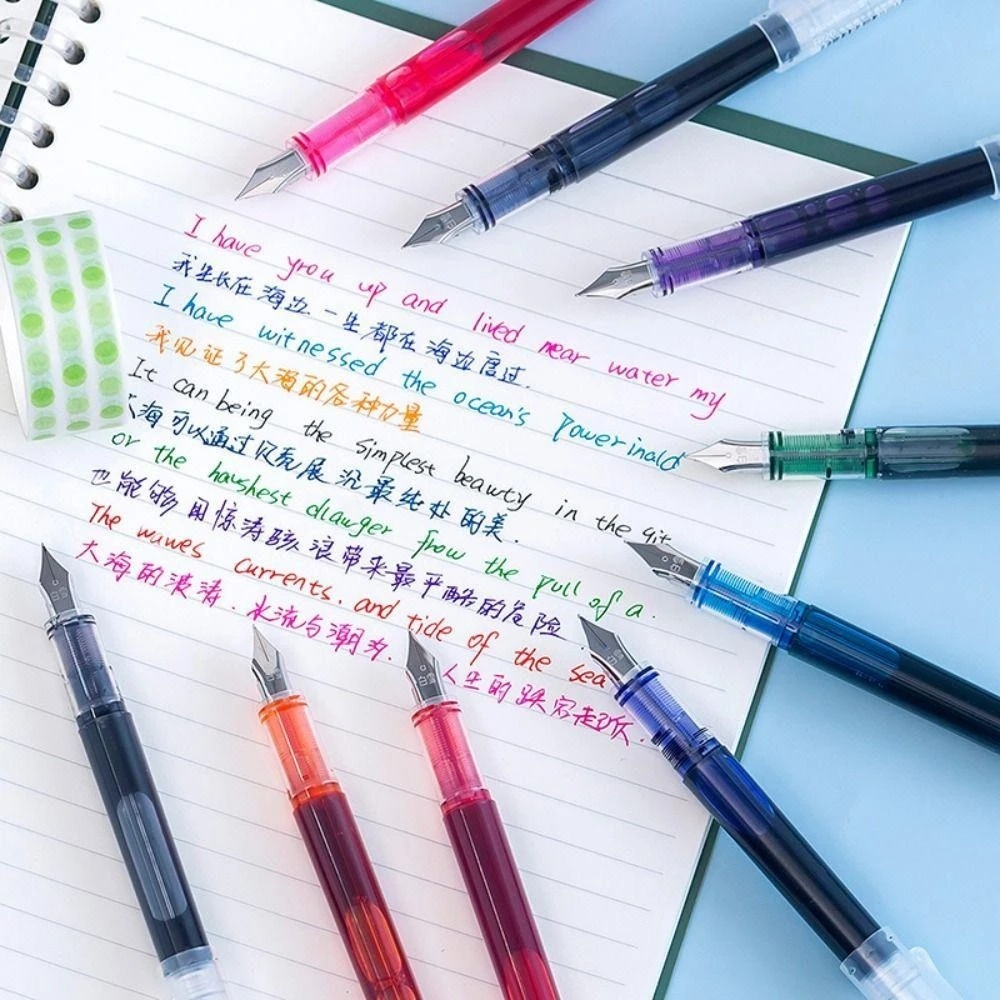 I have yrou up and lived near water my
我生长在海边一生都在海边度过.
I have witnessed the ocean's Powerinald
我见证了大海的各种力量
It can being the simplest beauty in the git
大海可以通过贝壳展 沉最纯处的美.
or the haushest dlawger frow the pull of a.
也能够用惊涛骇浪带来最严酷的危险.
The waves currents. and tide of the sea
大海的波涛.水流与潮汐.
人生的跌宕起伏.